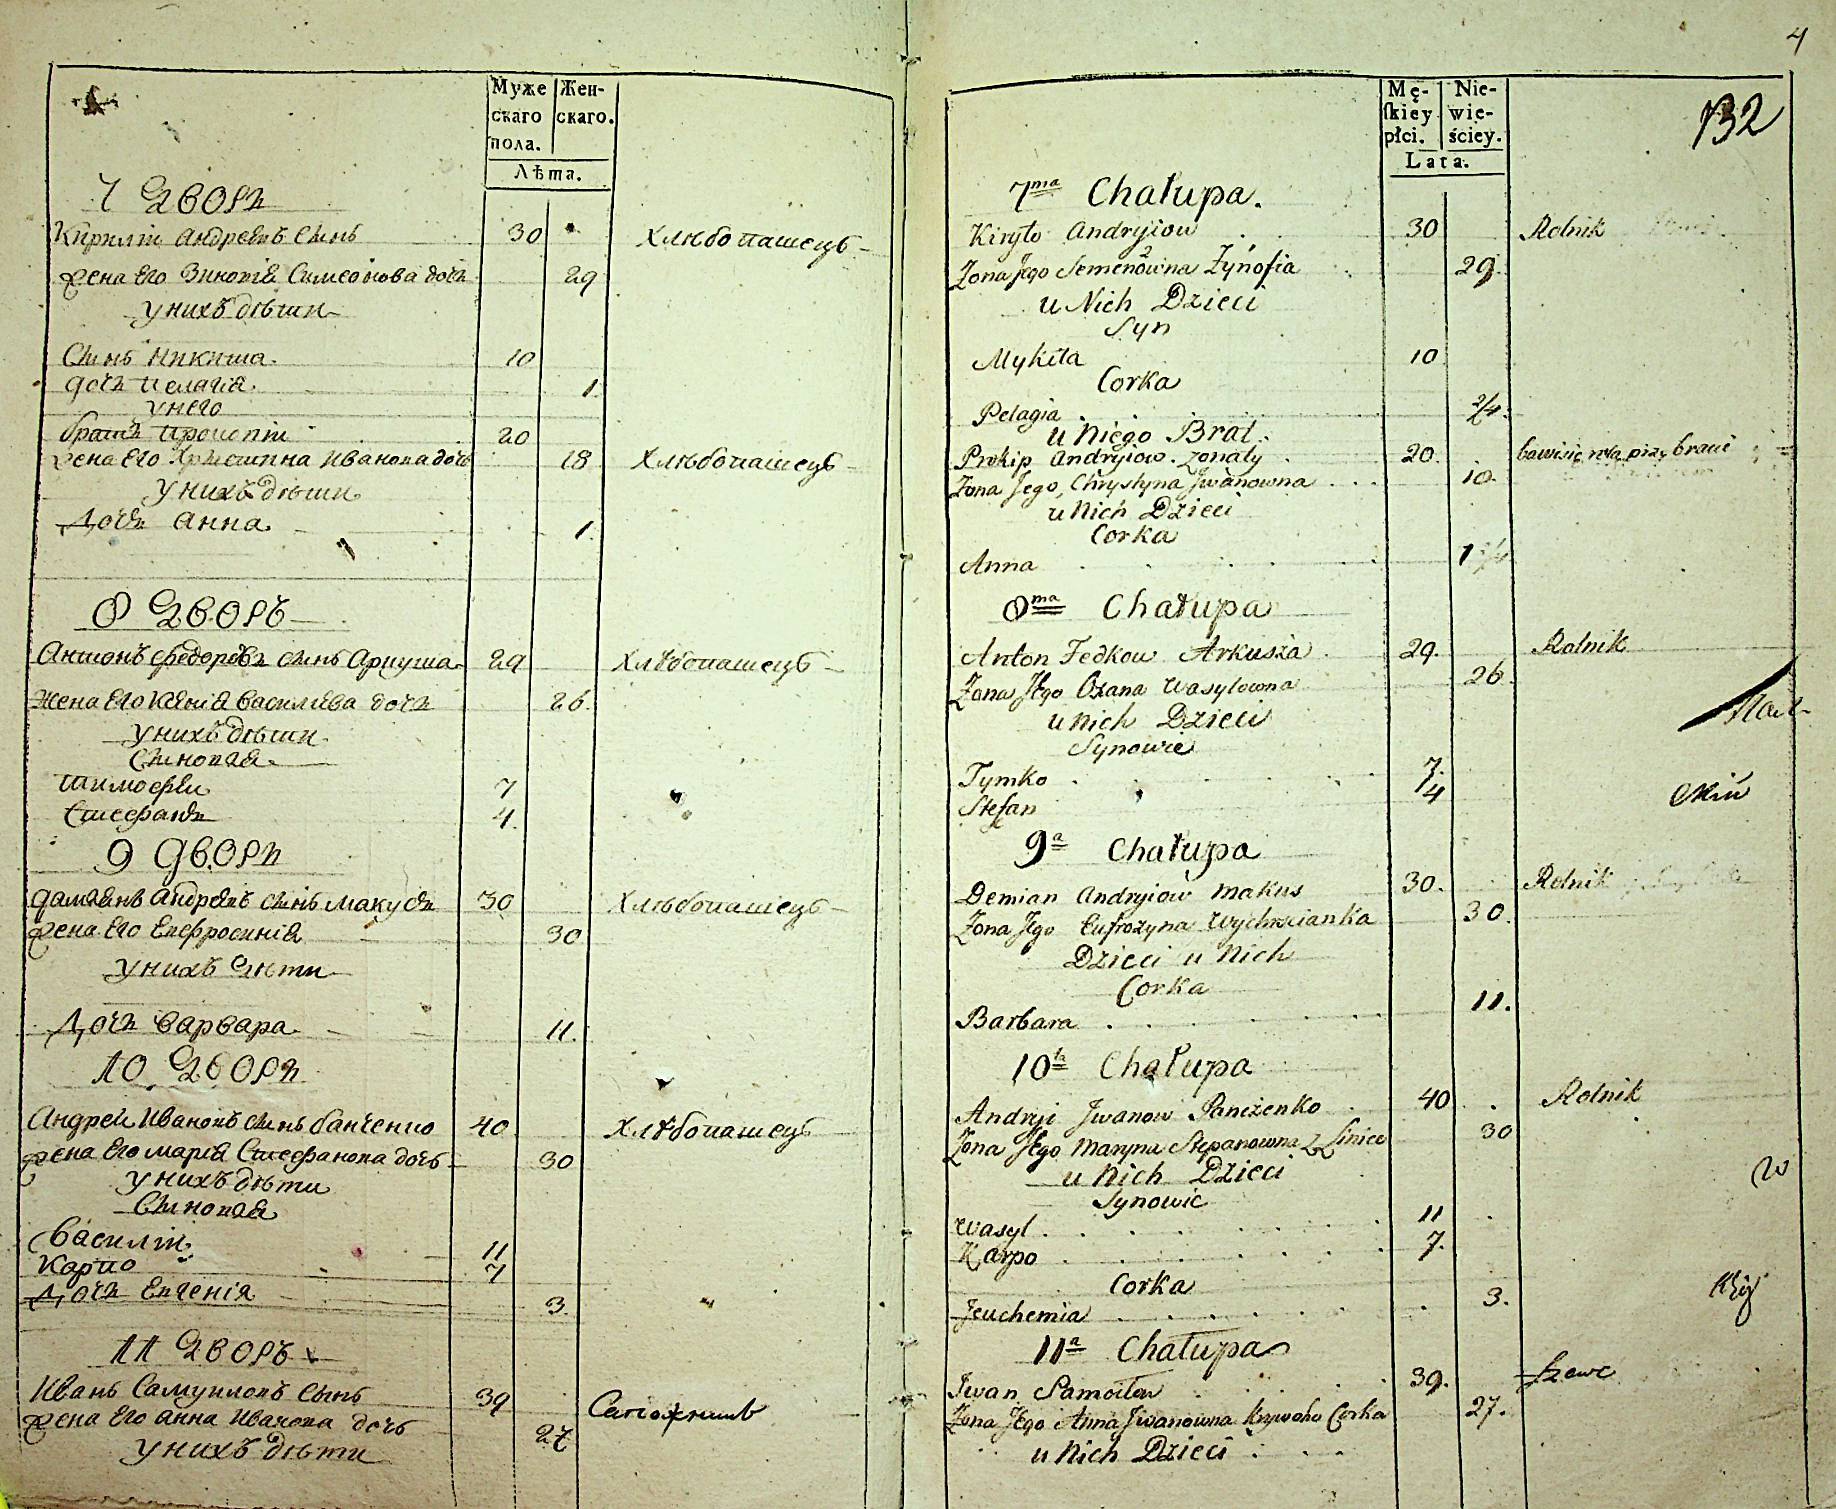 Муже
скаго
пола.
Жен-
скаго.
Лѣта.
7 Дворъ
Кирилій Андреевъ Сынъ 30 Хлѣбопашецъ
Жена Его Зиновія Симеонова дочь 29
у нихъ дѣти
Сынъ Никита 10
дочь Пелагія 1
у него
братъ Прокопій 20
Жена Его Христина Иванова дочь 18 Хлѣбопашецъ
у нихъ дѣти
Дочь Анна 1
8 Дворъ
Антонъ Федоровъ сынъ Аркуша 29 Хлѣбопашецъ
Жена Его Ксенія Василіева дочь 26.
у нихъ дѣти
Сыновья
Тимофей 7
Стефанъ 4.
9 Дворъ
Даміянъ Андреевъ сынъ Макусъ 30 Хлѣбопашецъ
Жена Его Евфросинія 30
у нихъ дѣти
Дочь Варвара 11.
10 Дворъ
Андрей Ивановъ сынъ Панченко 40 Хлѣбопашецъ
Жена Его Марія Стефанова дочь 30
у нихъ дѣти
Сыновья
Василій 11
Карпо 7
Дочь Евгенія 3.
11 Дворъ
Иванъ Самуиловъ Сынъ 39 Сапожникъ
Жена Его Анна Иванова дочь 27
у нихъ дѣти
4
132
Mę-
skiey
płci.
Nie-
wie-
ściey.
Lata.
7ma Chałupa.
Kiryło Andryiow 30 Rolnik
Zona Jego Semenowna Zynofia 29.
u Nich Dzieci
Syn
Mykita 10
Corka
Pelagia 2/4.
u Niego Brat
Prokip Andryiow. zonaty 20. bawi się rolą przy bracie
Zona Jego, Chrystyna Jwanowna 18.
u Nich Dzieci
Corka
Anna 1
8ma Chałupa
Anton Fedkow Arkusza 29. Rolnik
Zona Jego Oxana Wasylowna 26.
u Nich Dzieci
Synowie
Tymko 7.
Stefan 4
9a Chałupa
Demian Andryiow Makus 30. Rolnik
Zona Jego Eufrozyna Wychrzcianka 30.
Dzieci u Nich
Corka
Barbara 11.
10ta Chałupa
Andryi Jwanow Panczenko 40 Rolnik
Zona Jego Maryna Stepanowna z Liniec 30
u Nich Dzieci
Synowie
Wasyl 11
Karpo 7.
Corka
Jeuchemia 3.
11a Chałupa
Jwan Samoiłow 39. Szewc
Zona Jego Anna Jwanowna Krywoho Corka 27.
u Nich Dzieci